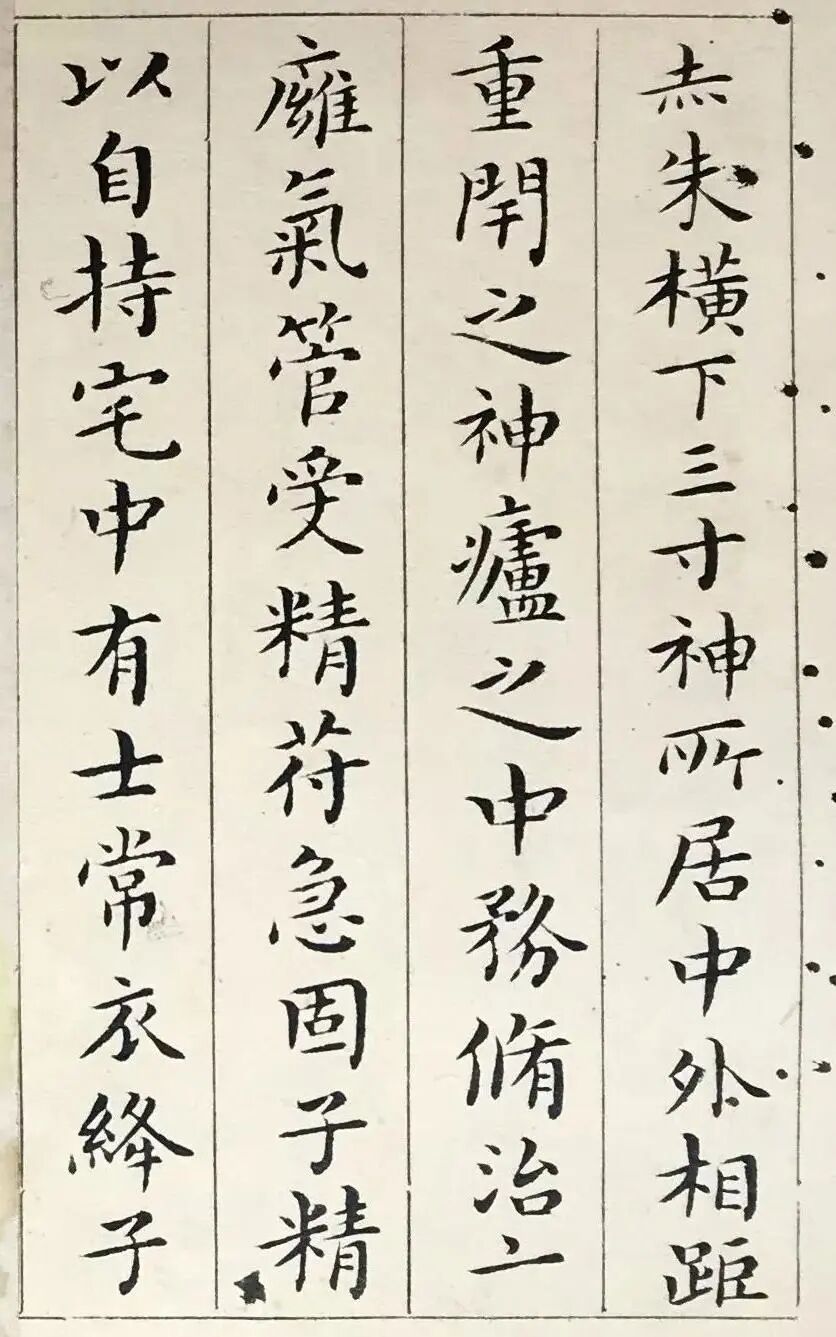 赤朱橫下三寸神所居中外相距
重閇之神廬之中務脩治亠
癰氣管受精苻急固子精
以自持宅中有士常衣絳子